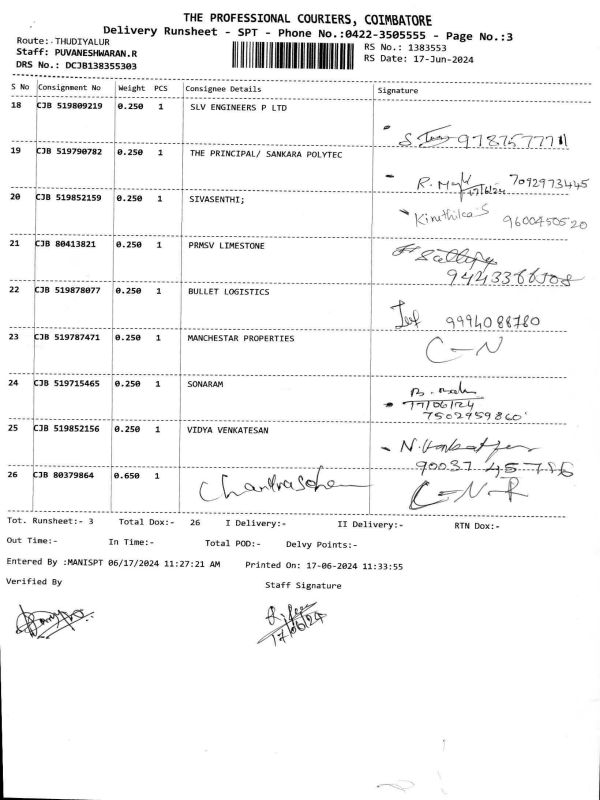 THE PROFESSIONAL COURIERS, COIMBATORE
Delivery Runsheet - SPT - Phone No.:0422-3505555 - Page No.:3
Route:- THUDIYALUR
RS No.: 1383553
Staff: PUVANESHWARAN.R
RS Date: 17-Jun-2024
DRS No.: DCJB138355303
S No Consignment No Weight PCS Consignee Details Signature
18 CJB 519809219 0.250 1 SLV ENGINEERS P LTD
9787577711
19 CJB 519790782 0.250 1 THE PRINCIPAL/ SANKARA POLYTEC
R. 7092973445
17/6/24
20 CJB 519852159 0.250 1 SIVASENTHI;
Kiruthika S 9600450520
21 CJB 80413821 0.250 1 PRMSV LIMESTONE
22 CJB 519878077 0.250 1 BULLET LOGISTICS
9994088780
23 CJB 519787471 0.250 1 MANCHESTAR PROPERTIES
C-N
24 CJB 519715465 0.250 1 SONARAM
17/06/24
7502959860
25 CJB 519852156 0.250 1 VIDYA VENKATESAN
N.
90037 45786
26 CJB 80379864 0.650 1
C-N-R
Tot. Runsheet:- 3 Total Dox:- 26 I Delivery:- II Delivery:- RTN Dox:-
Out Time:- In Time:- Total POD:- Delvy Points:-
Entered By :MANISPT 06/17/2024 11:27:21 AM Printed On: 17-06-2024 11:33:55
Verified By Staff Signature
17/06/24